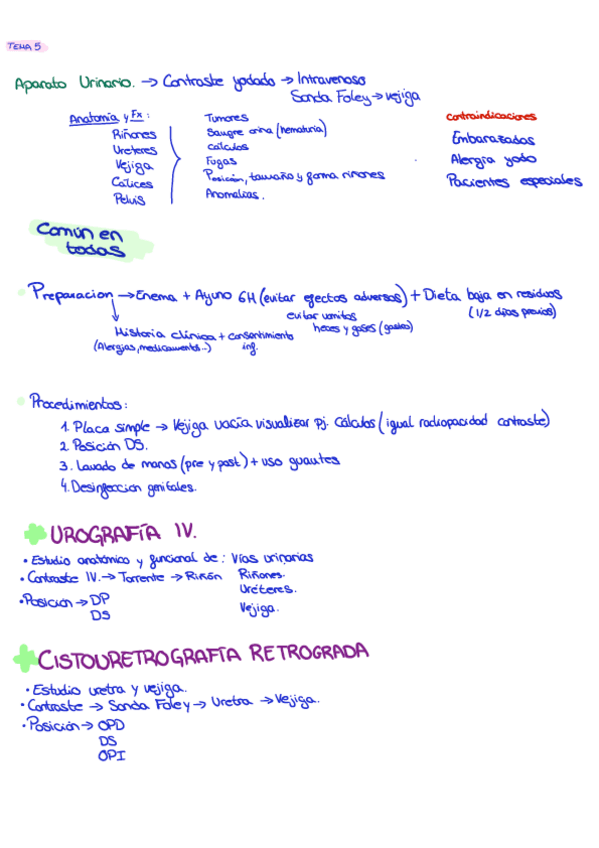 TEMA 5
Aparato Urinario. → Contraste yodado → Intravenoso
Sonda Foley → vejiga
Anatomía y Fx:
Riñones
Ureteres
Vejiga
Calices
Pelvis
Tumores
Sangre orina (hematuria)
Cálculos
Fugas
Posición, tamaño y forma riñones
Anomalias.
Contraindicaciones
Embarazadas
Alergia yodo
Pacientes especiales
Común en
todas
Preparacion → Enema + Ayuno 6H (evitar efectos adversos) + Dieta baja en residuos
evitar vomitos
(1/2 días previos)
heces y gases (gastro)
Historia clínica + consentimiento
(Alergias, medicamento...) inf.
Procedimientos:
1. Placa simple → Vejiga vacía visualizar Pj. Cálculos (igual radiopacidad contraste)
2. Posición DS.
3. Lavado de manos (pre y post) + uso guantes
4. Desinfeccion genitales.
UROGRAFÍA IV.
• Estudio anatómico y funcional de: Vías urinarias
• Contraste IV. → Torrente → Riñón Riñones.
Uréteres.
• Posición → DP Vejiga.
DS
CISTOURETROGRAFÍA RETROGRADA
• Estudio uretra y vejiga.
• Contraste → Sonda Foley → Uretra → Vejiga.
• Posición → OPD
DS
OPI